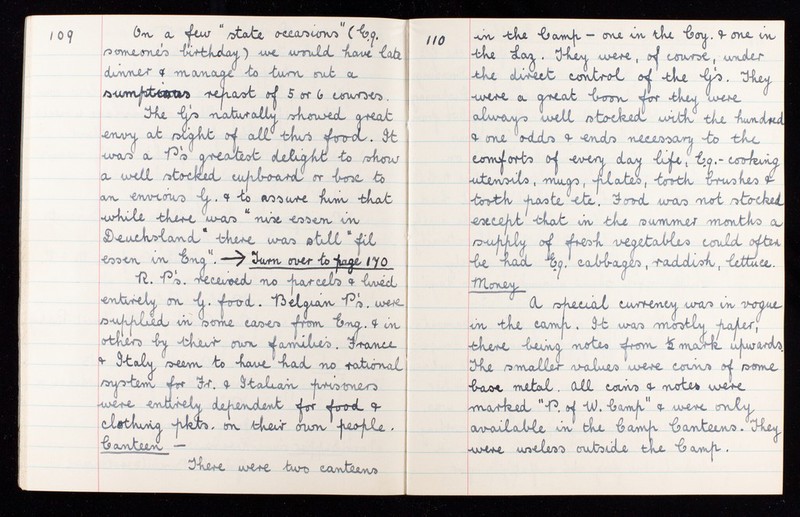 109
On a few "state occasions" (Eg.
someone's birthday) we would have late
dinner & manage to turn out a
sumptious repast of 5 or 6 courses.
The G's naturally showed great
envy at sight of all this food. It
was a P's greatest delight to show
a well stocked cupboard or box to
an envious G. & to assure him that
while there was "nix essen in
Deuchsland" there was still "fil
essen in Eng". → Turn over to page 170
R. P's. received no parcels & lived
entirely on G. food. Belgian P's. were
supplied in some cases from Eng. & in
others by their own families. France
& Italy seem to have had no rational
system for Fr. & Italian prisoners
were entirely dependent for food &
clothing pkts. on their own people.
Canteen —
There were two canteens
110
in the Camp — one in the Coy. & one in
the Lag. They were, of course, under
the direct control of the G's. They
were a great boon for they were
always well stocked with the hundred
& one odds & ends necessary to the
comforts of every day life, Eg. - cooking
utensils, mugs, plates, tooth brushes &
tooth paste etc. Food was not stocked
except that in the summer months a
supply of fresh vegetables could often
be had Eg. cabbages, raddish, lettuce.
Money
A special currency was in vogue
in the camp. It was mostly paper,
there being notes from ½ mark upwards.
The smaller values were coins of some
base metal. All coins & notes were
marked "P. of W. Camp" & were only
available in the Camp Canteens. They
were useless outside the Camp.